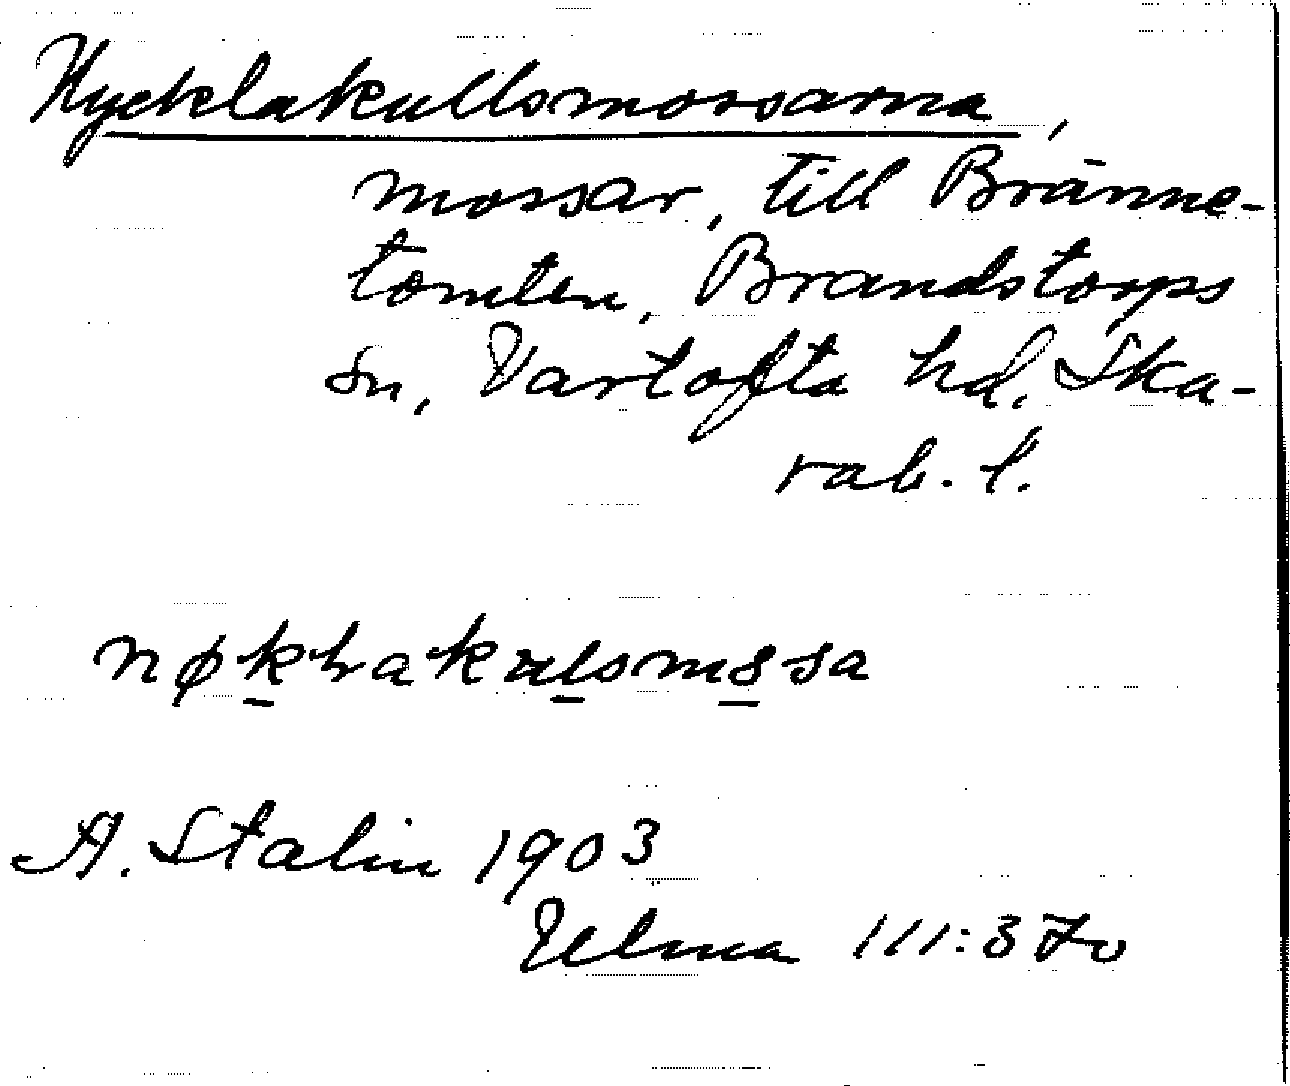 Nycklakullsmossarna,
mossar, till Bränne-
tomten, Brandstorps
sn, Vartofta hd, Ska-
rab. l.
nøkḻakulsmssa
A. Stalin 1903
Ulma 111:370